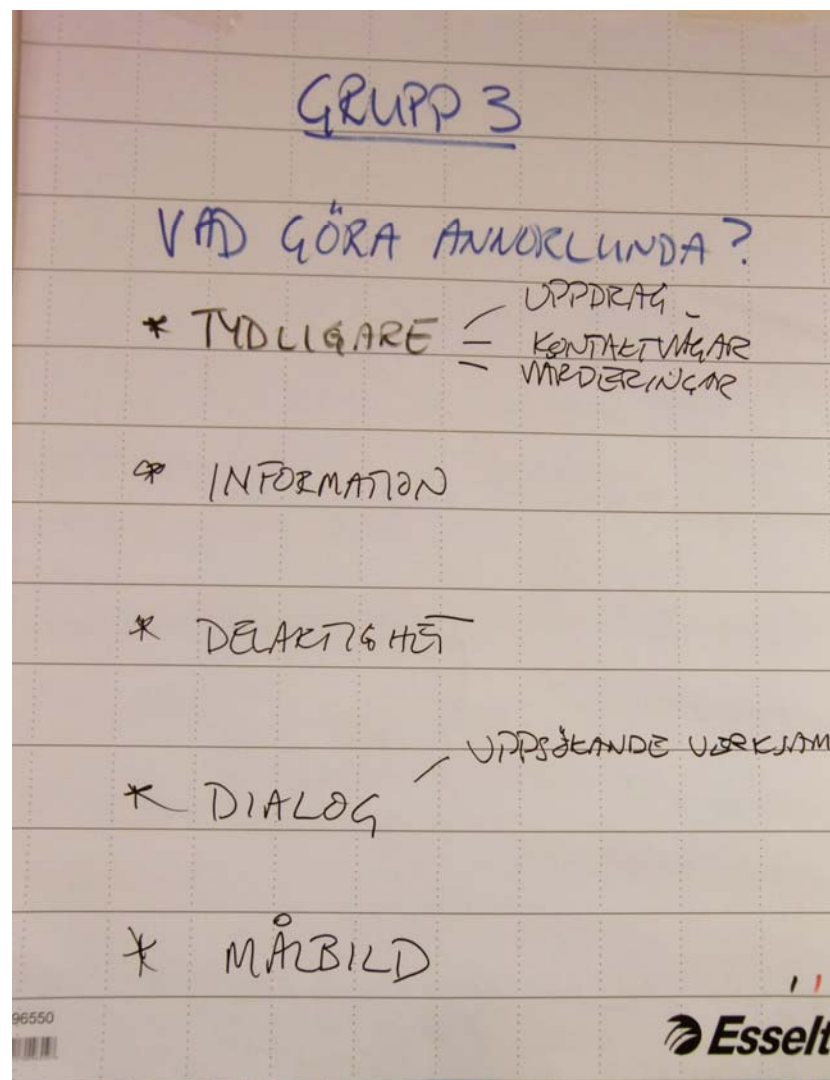 GRUPP 3
VAD GÖRA ANNORLUNDA?
* TYDLIGARE - UPPDRAG
- KONTAKTVÄGAR
- VÄRDERINGAR
* INFORMATION
* DELAKTIGHET
* DIALOG - UPPSÖKANDE VERKSAM
* MÅLBILD
96550
Esselt